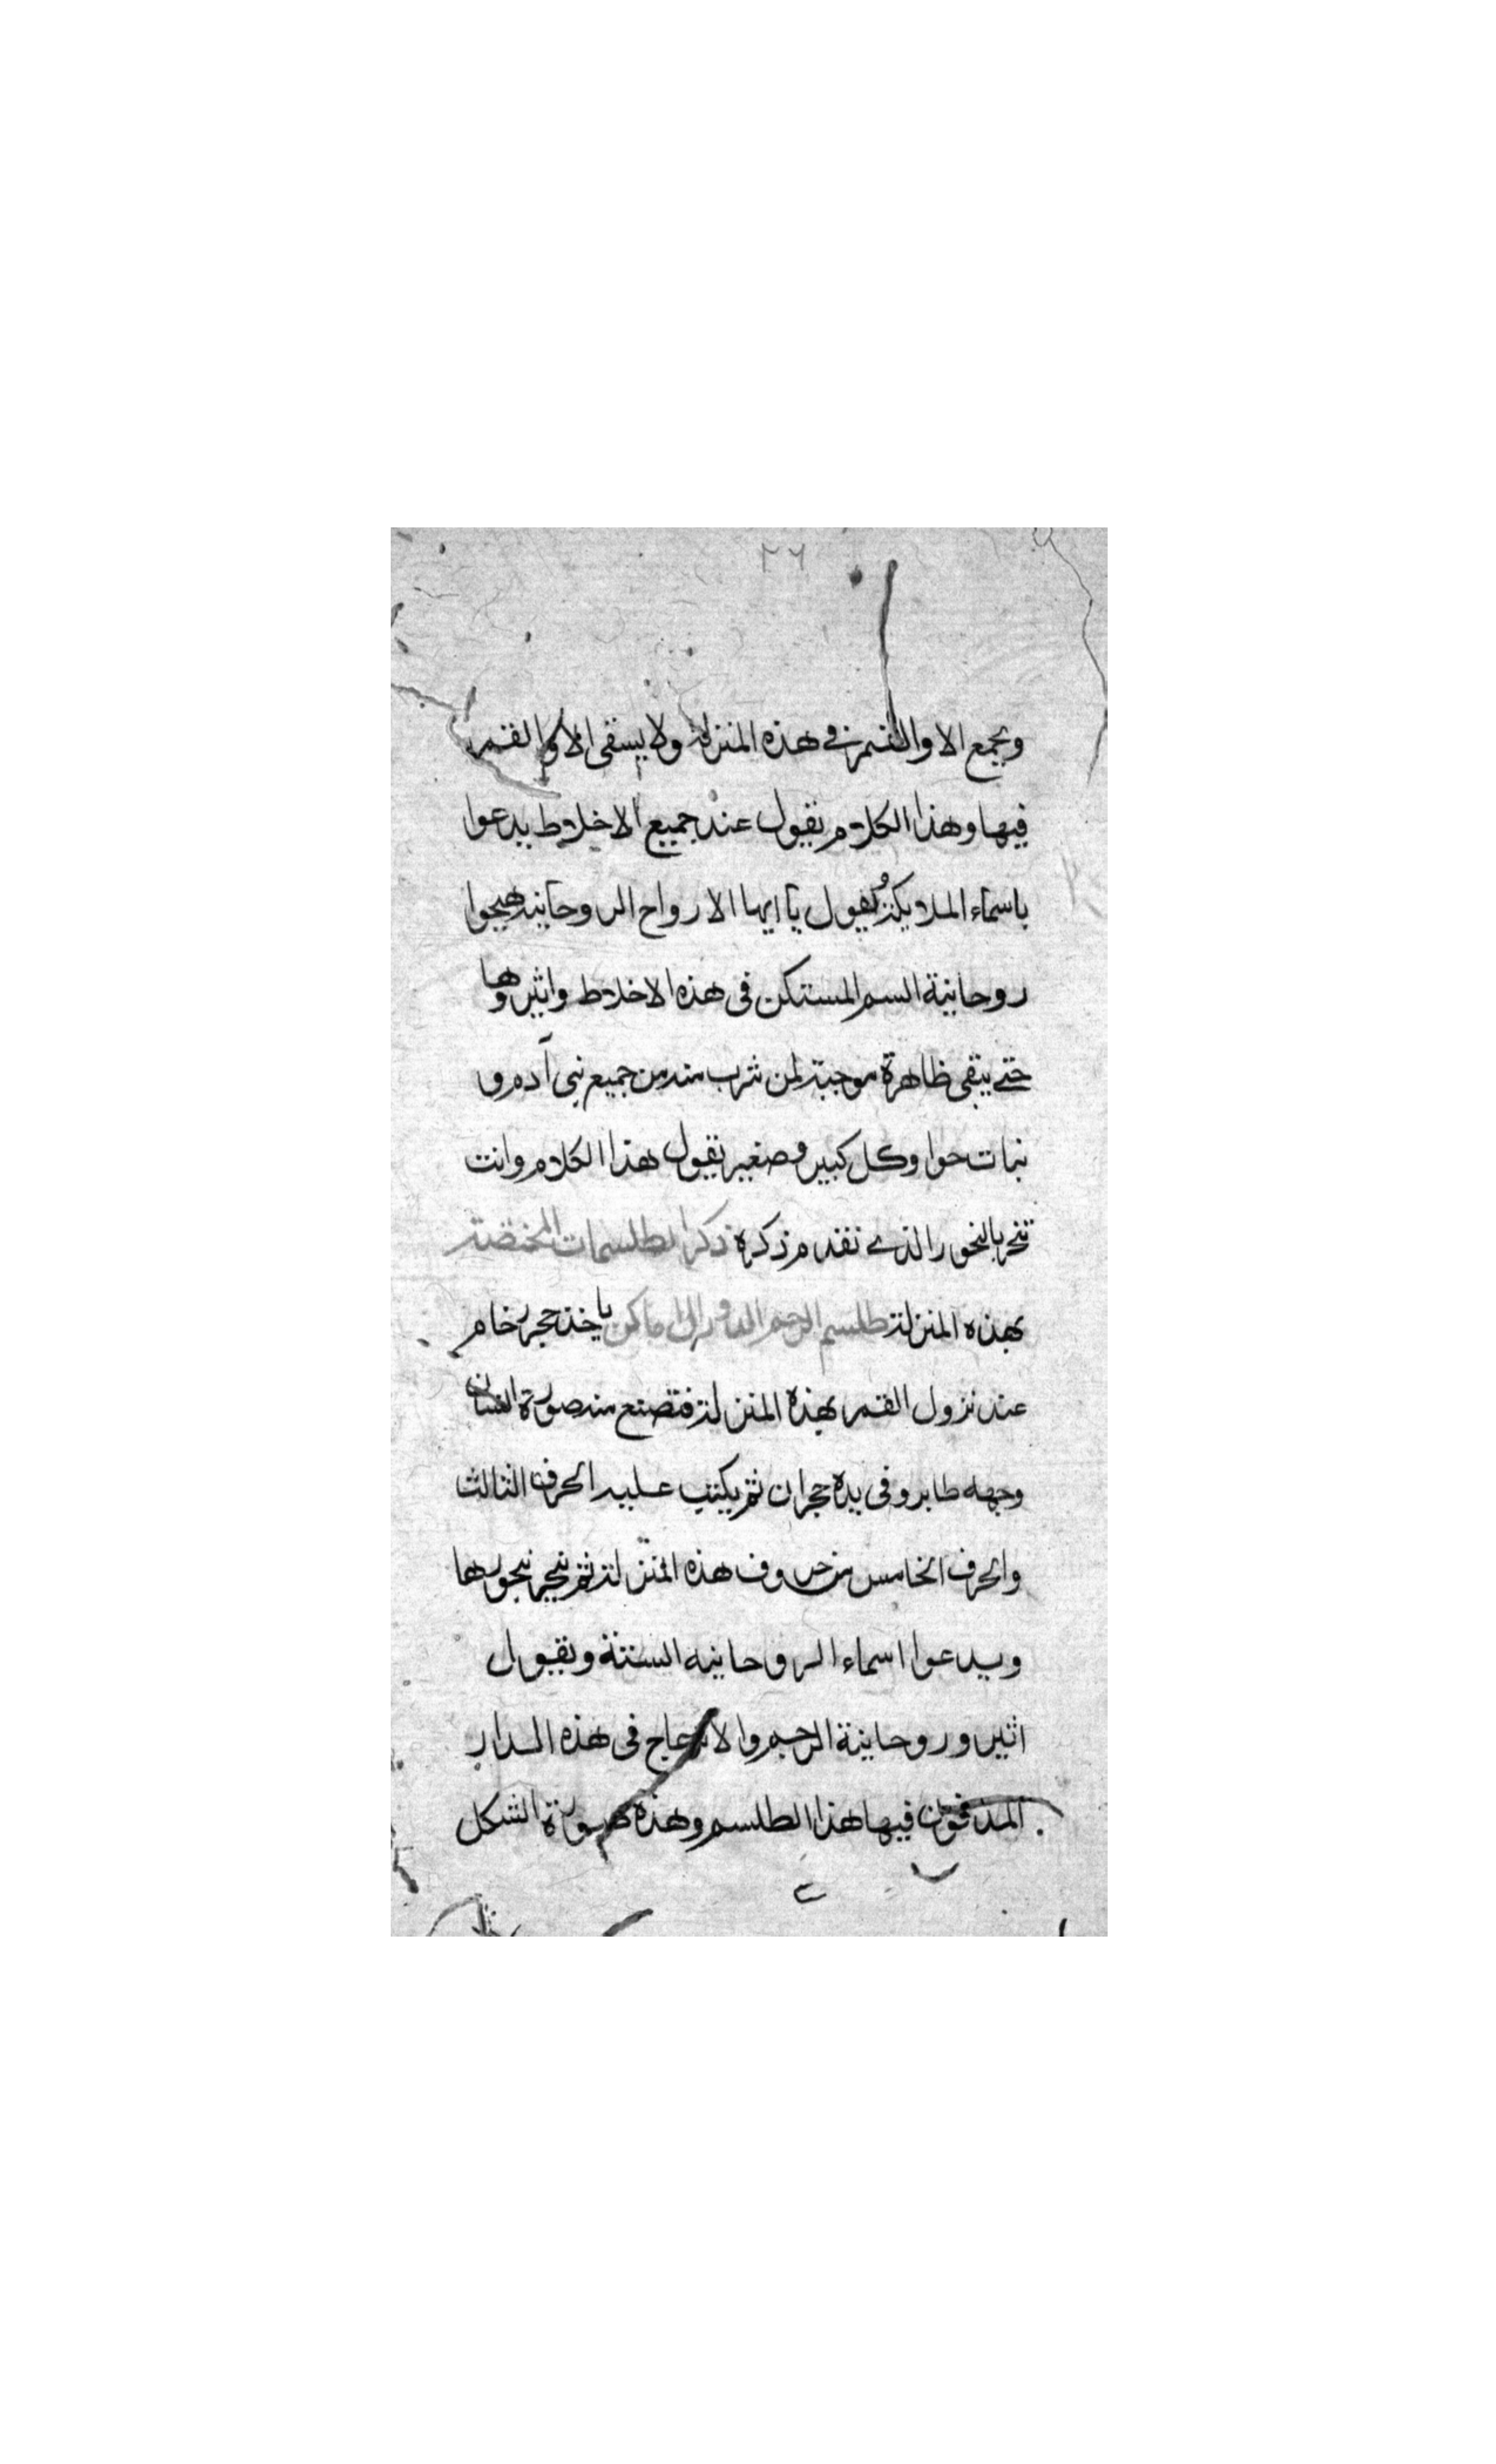 ٢٦
ويجمع الا والقمر في هذه المنزلة ولا يسقى الا والقمر
فيها وهذا الكلام تقول عند جميع الاخلاط يدعوا
باسماء الملايكة ويقول يا ايها الارواح الروحانية هيجوا
روحانية السم المستكن في هذه الاخلاط واثيروها
حتى يبقى ظاهرة موجبة لمن شرب منه من جميع بني آدم و
بنات حوا وكل كبير وصغير تقول هذا الكلام وانت
تبخر بالبخور الذي تقدم ذكره ذكر الطلسمات المختصة
بهذه المنزلة طلسم الرجم الاماكن ياخذ حجر رخام
عند نزول القمر بهذه المنزلة فتصنع منه صورة انسان
وجهه طاير وفي يده حجران ثم يكتب عليه الحرف الثالث
والحرف الخامس من حروف هذه المنزلة ثم يبخر ببخورها
ويدعوا اسماء الروحانيه الستة ويقول
اثيروا روحانية الرجم والازعاج في هذه الدار
المدفون فيها هذا الطلسم وهذه صورة الشكل